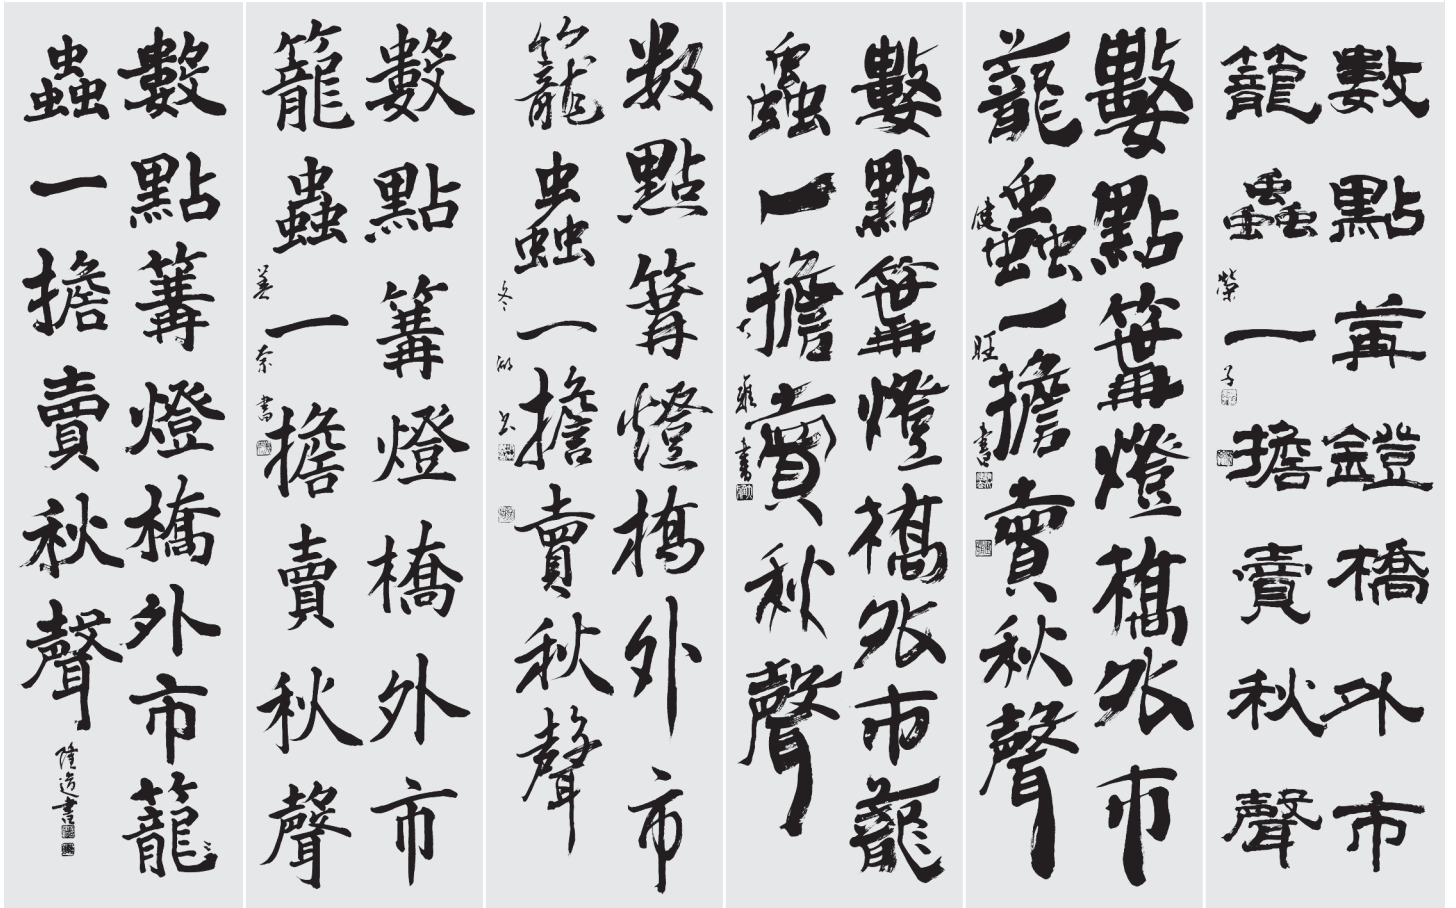 數點冓鐙橋外市
籠蟲一擔賣秋聲
榮子
數點篝燈橋外市
籠蟲一擔賣秋聲
健旺書
數點篝燈橋外市籠
蟲一擔賣秋聲
雅書
数點篝燈橋外市
籠蟲一擔賣秋聲
冬
數點篝燈橋外市
籠蟲一擔賣秋聲
美奈書
數點篝燈橋外市籠
蟲一擔賣秋聲
隆道書